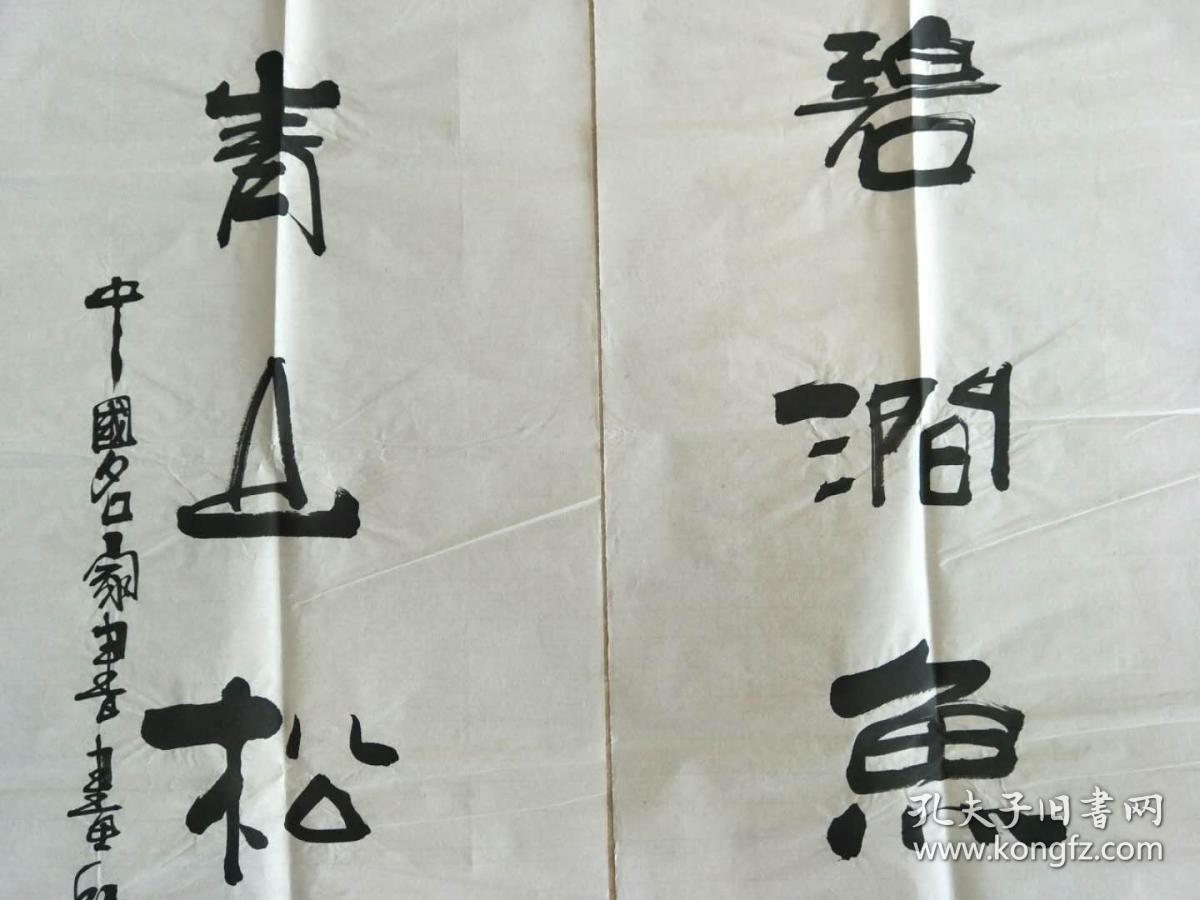 碧澗魚
青山松
中國名家書畫
孔夫子旧书网
www.kongfz.com